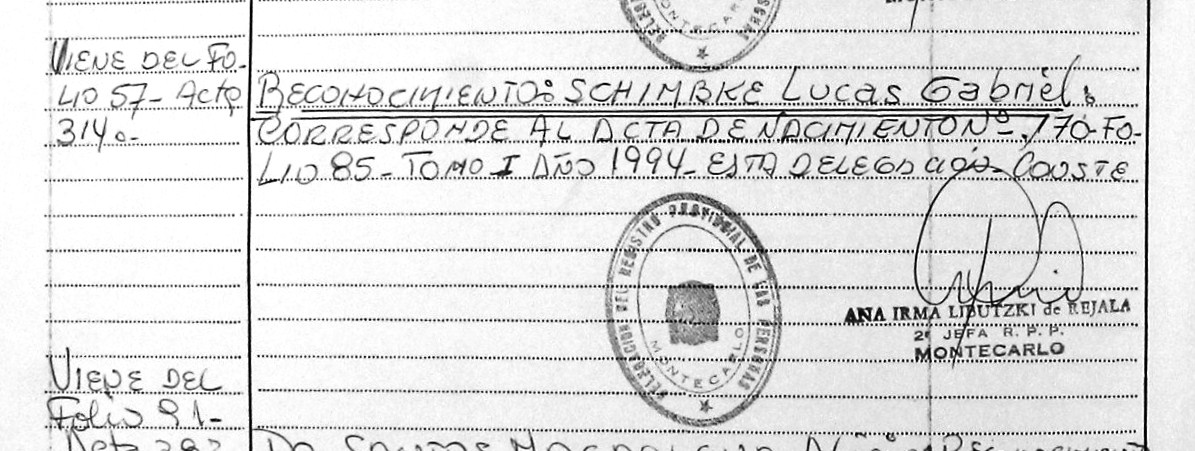 MONTECARLO
VIENE DEL FO-
LIO 57- Acta
314.-
RECONOCIMIENTO: SCHIMBKE Lucas Gabriel:
CORRESPONDE AL ACTA DE NACIMIENTO Nº 170-FO-
LIO 85- TOMO I AÑO 1994- ESTA DELEGación- CONSTE
DELEGACION DEL REGISTRO PROVINCIAL DE LAS PERSONAS
MONTECARLO
ANA IRMA LIBUTZKI de REJALA
2ª JEFA R. P. P.
MONTECARLO
VIENE DEL
Folio 91-